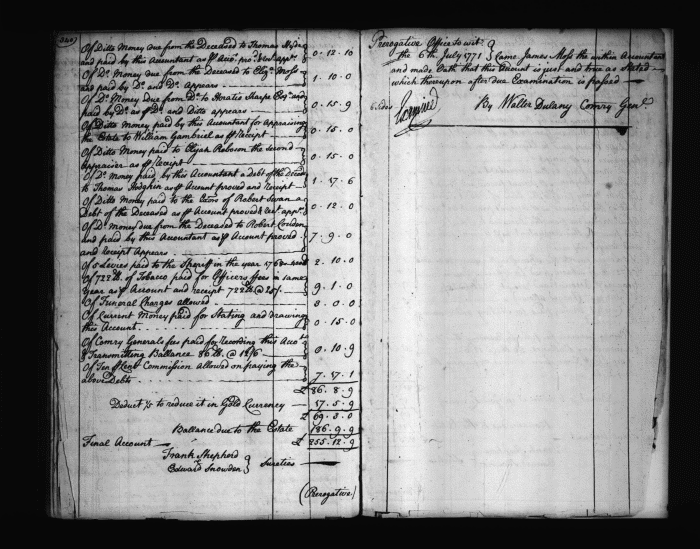 Of Ditto Money due from the Deceased to Thomas
and paid by this Accountant as
0.12.10
Of Do. Money due from the Deceased to Moss
and paid by Do. and Do. Appears
1.10.0
Of Do. Money due from Do. to Horatio Sharpe Esqr. and
paid by Do. as Do. and Ditto appears
0.15.9
Of Ditto Money paid by this Accountant for Appraising
the Estate to William Gambriel as Receipt
0.15.0
Of Ditto Money paid to Elijah Robosson the second
Appraiser as Receipt
0.15.0
Of Do. Money paid by this Accountant a debt of the
to Thomas Hodgkin as Account proved and Receipt
1.17.6
Of Ditto Money paid to the Exors of Robert Swan a
Debt of the Deceased as Account proved &
0.12.0
Of Do. Money due from the Deceased to Robert Couden
and paid by this Accountant as Account proved
and Receipt Appears
7.9.0
Of 5 Levies paid to the Sheriff in the year
2.10.0
Of 722 lb. of Tobacco paid for Officers fees in same
Year as Account and receipt 722 lb. @ 25/
9.1.0
Of Funeral Charges allowed
3.0.0
Of Current Money paid for Stating and drawing
this Account
0.15.0
Of Comry Generals fees paid for Recording this Acct
& Transmitting Ballance 86 lb. @ 12/6
0.10.9
Of Ten Cent Commission allowed on paying the
above Debts
7.17.1
£ 86.8.9
Deduct 1/5 to reduce it in Gold Currency
17.5.9
£ 69.3.0
Ballance due to the Estate
186.9.9
Final Account £ 255.12.9
Frank Shepherd
Edward Snowden } Sureties
(Prerogative)
Prerogative Office to wit
the 6th July 1771 } Came James Moss the within Accountant
and made Oath that this Account is just and true as Stated
which thereupon after due Examination is passed
By Walter Dulany Comry Genl.